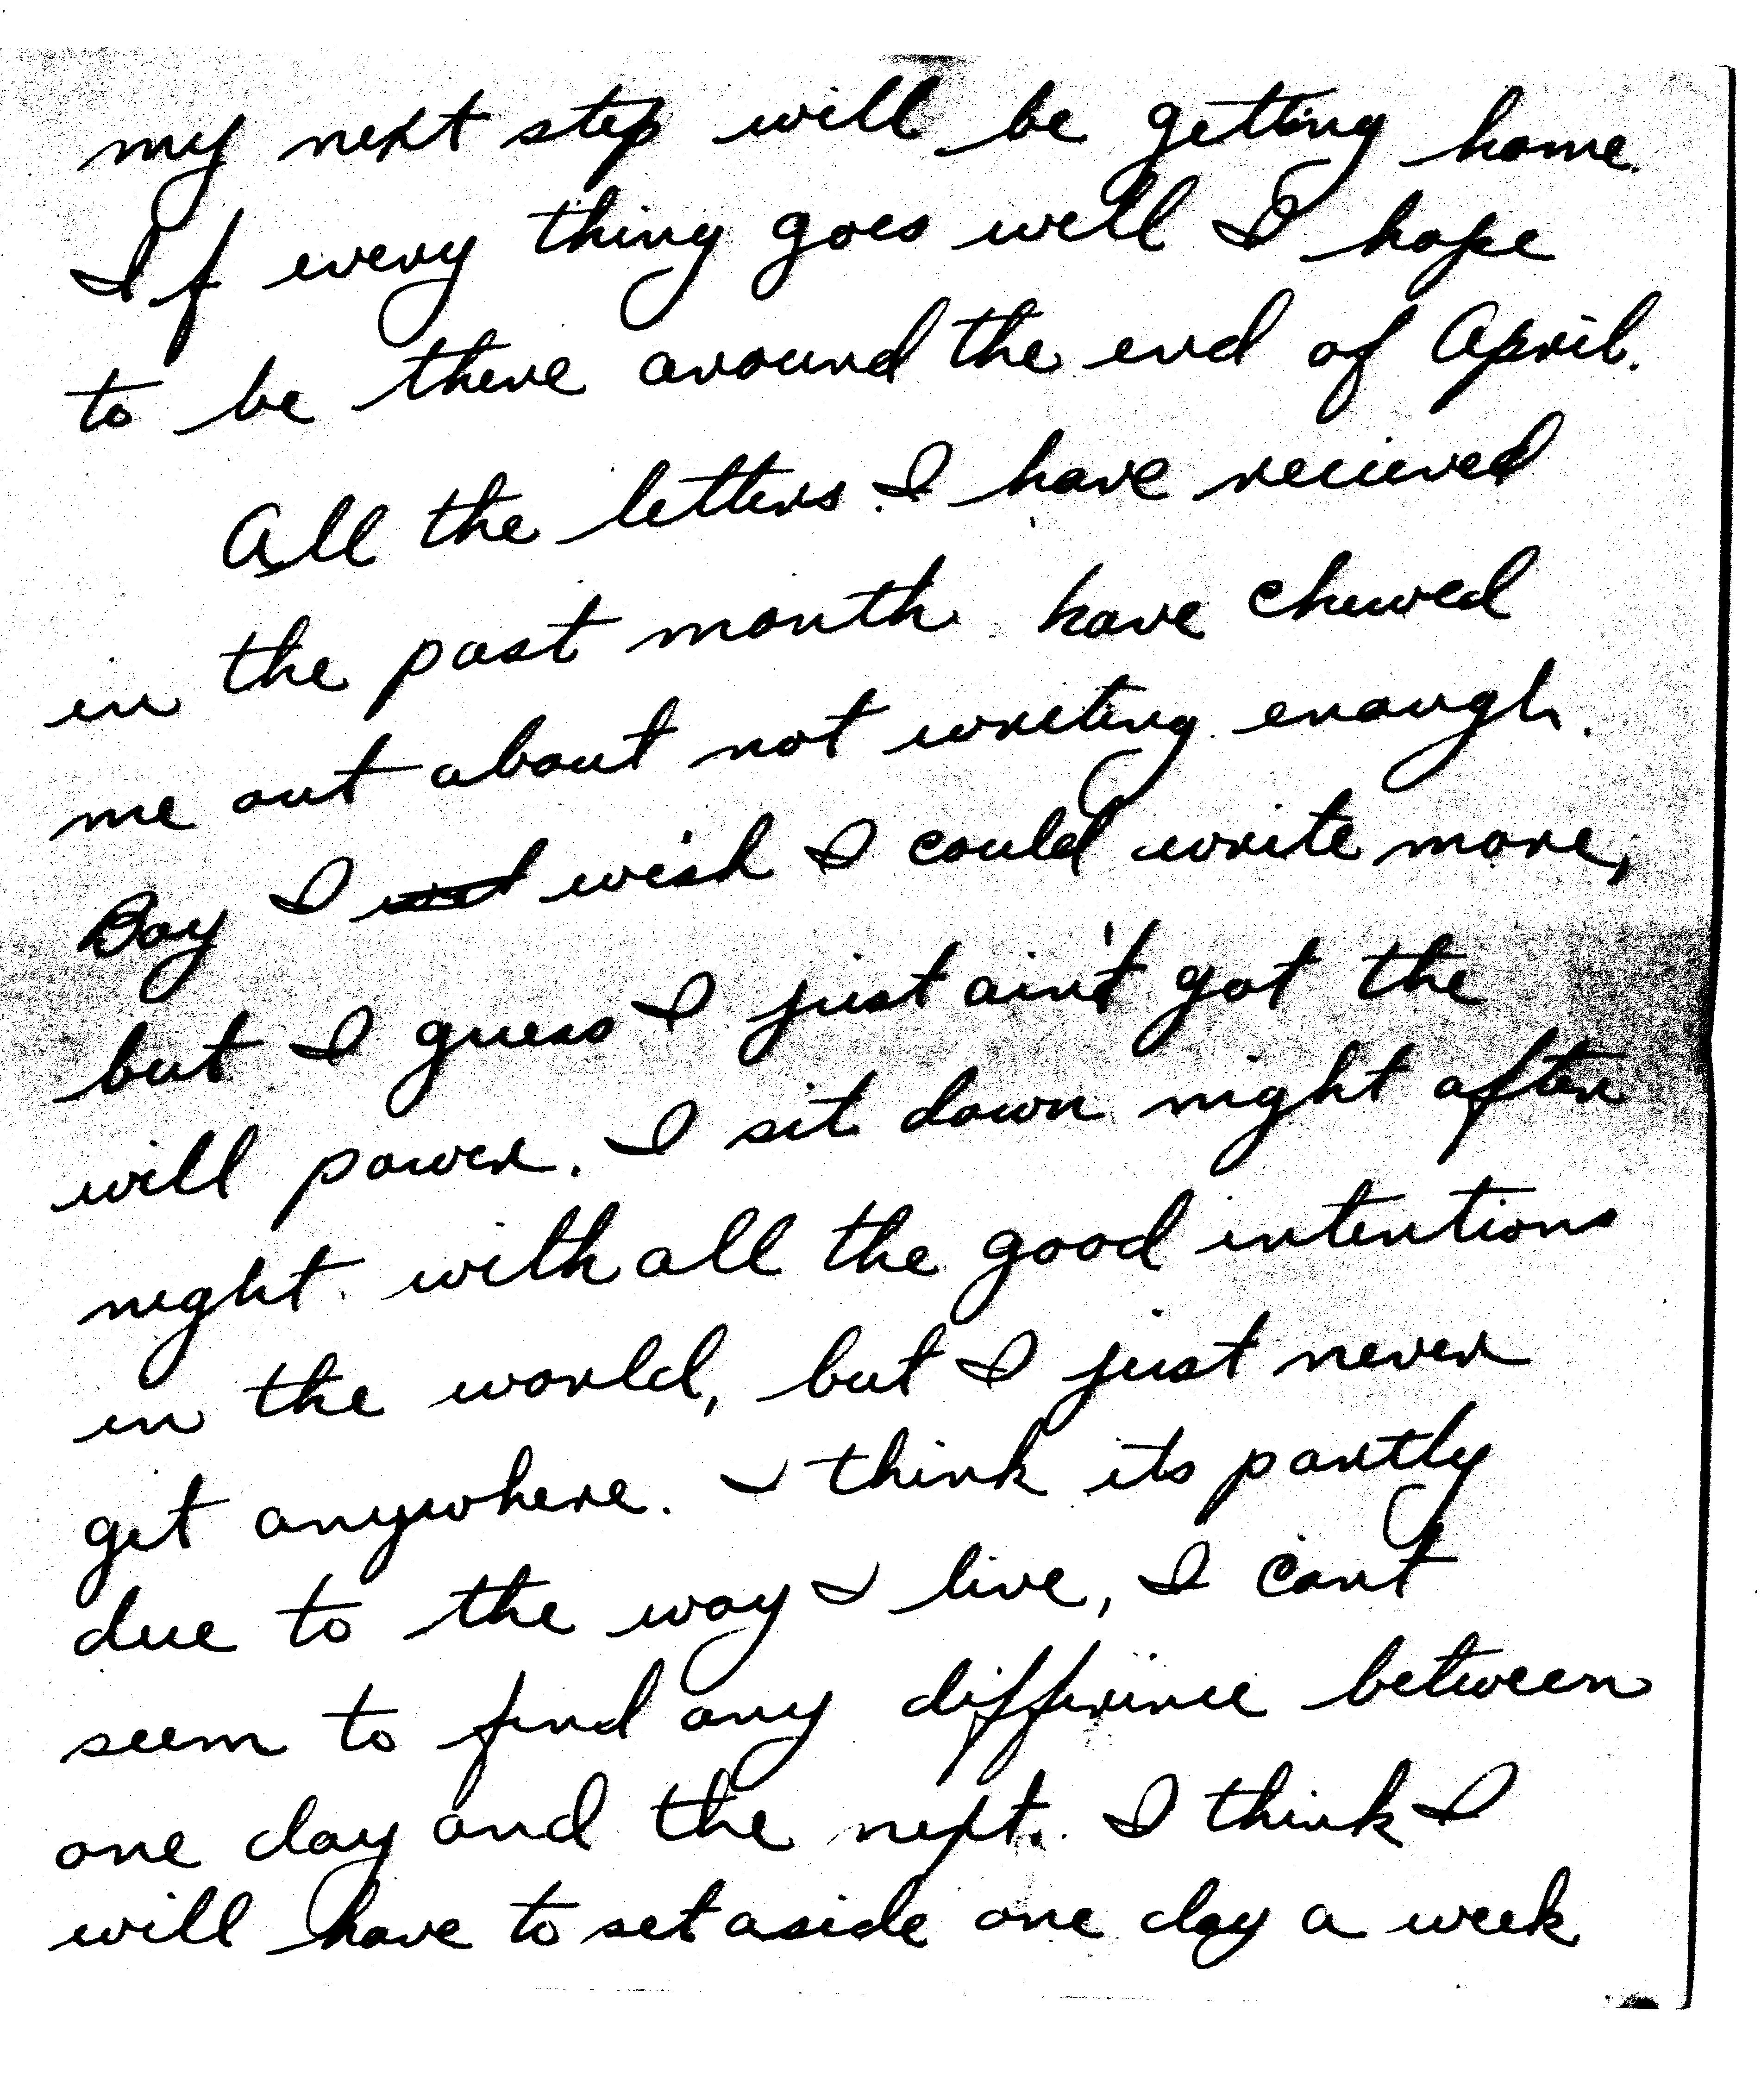 my next step will be getting home.
If every thing goes well I hope
to be there around the end of April.
All the letters I have recieved
in the past month have chewed
me out about not writing enough.
Boy I wish I could write more,
but I guess I just ain't got the
will power. I sit down night after
night. with all the good intentions
in the world, but I just never
get anywhere. I think its partly
due to the way I live, I cant
seem to find any difference between
one day and the next. I think I
will have to set aside one day a week